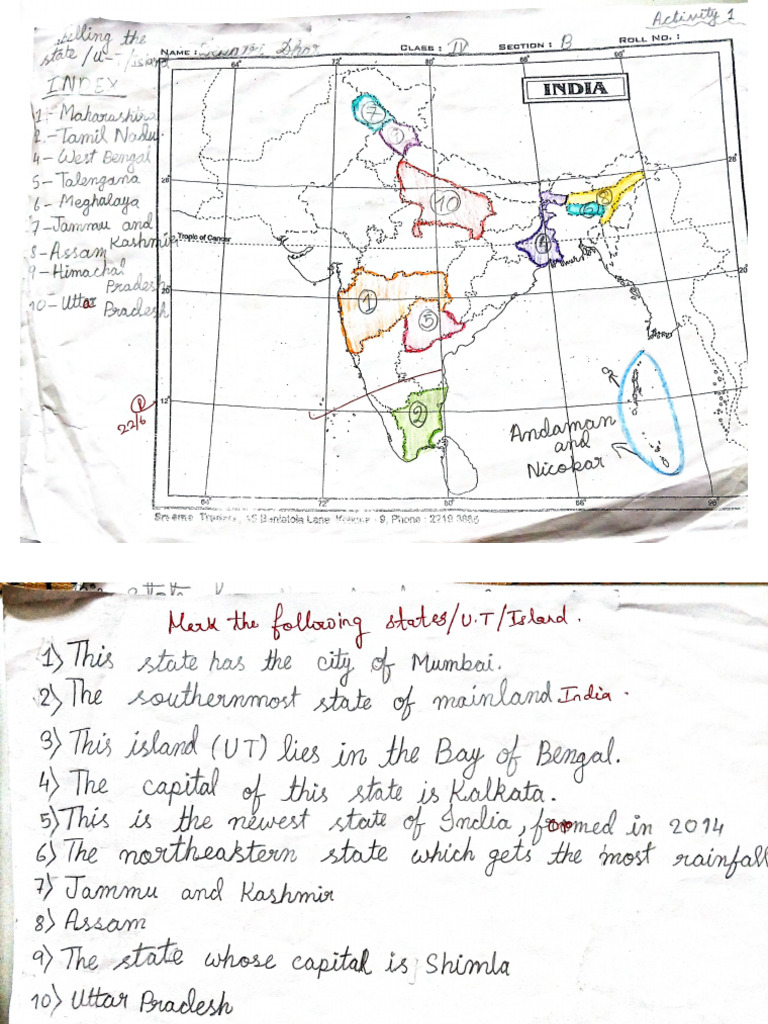 Activity 1
filling the
state / U-T / island
NAME : CLASS : IV SECTION : B ROLL NO. :
INDEX
1 - Maharashtra
2 - Tamil Nadu
4 - West Bengal
5 - Talengana
6 - Meghalaya
7 - Jammu and
Kashmir
8 - Assam
9 - Himachal
Prades
10 - Uttar
Pradesh
INDIA
64° 72° 80° 88° 96°
28 28
Tropic of Cancer
20 20
12
7
9
10
8
6
4
1
5
2
3
Andaman
and
Nicobar
22/6
64 72 80 88 96
Lane, 9, Phone : 2219 3886
Mark the following states/U.T/Island.
1) This state has the city of Mumbai.
2) The southernmost state of mainland India.
3) This island (UT) lies in the Bay of Bengal.
4) The capital of this state is Kalkata.
5) This is the newest state of India, formed in 2014
6) The northeastern state which gets the most rainfall
7) Jammu and Kashmir
8) Assam
9) The state whose capital is Shimla
10) Uttar Pradesh